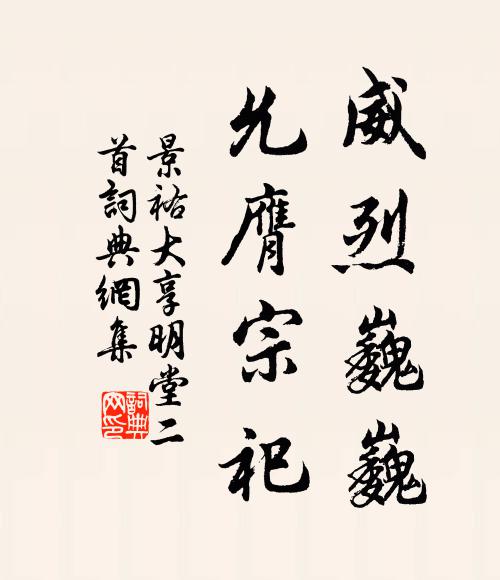 威烈巍巍
允膺宗祀
景祐大享明堂二
首詞典網集
詞典
网印